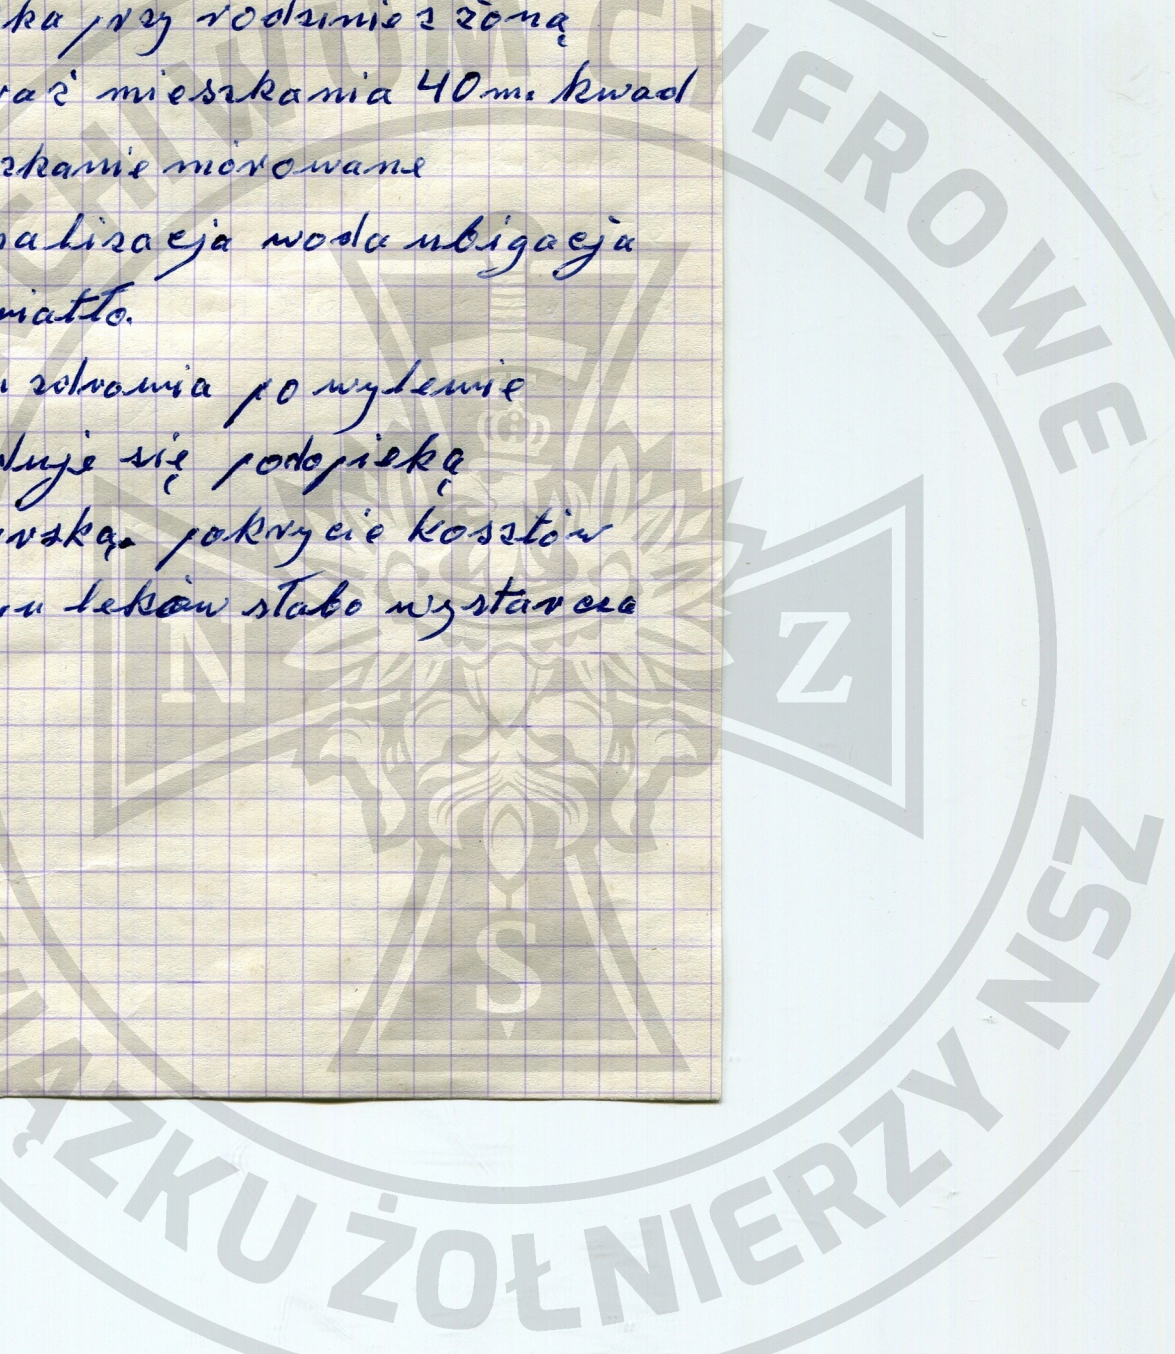 ka przy rodzinie z żoną
ać mieszkania 40 m. kwad
zkanie mórowane
alizacja woda ubigacja
iatło.
zdrowia po wylewie
duje się podopieką
rską. pokrycie kosztów
u leków słabo wystarcza
CHIWUM CYFROWE
ĄZKU ŻOŁNIERZY NSZ
N
Z
S